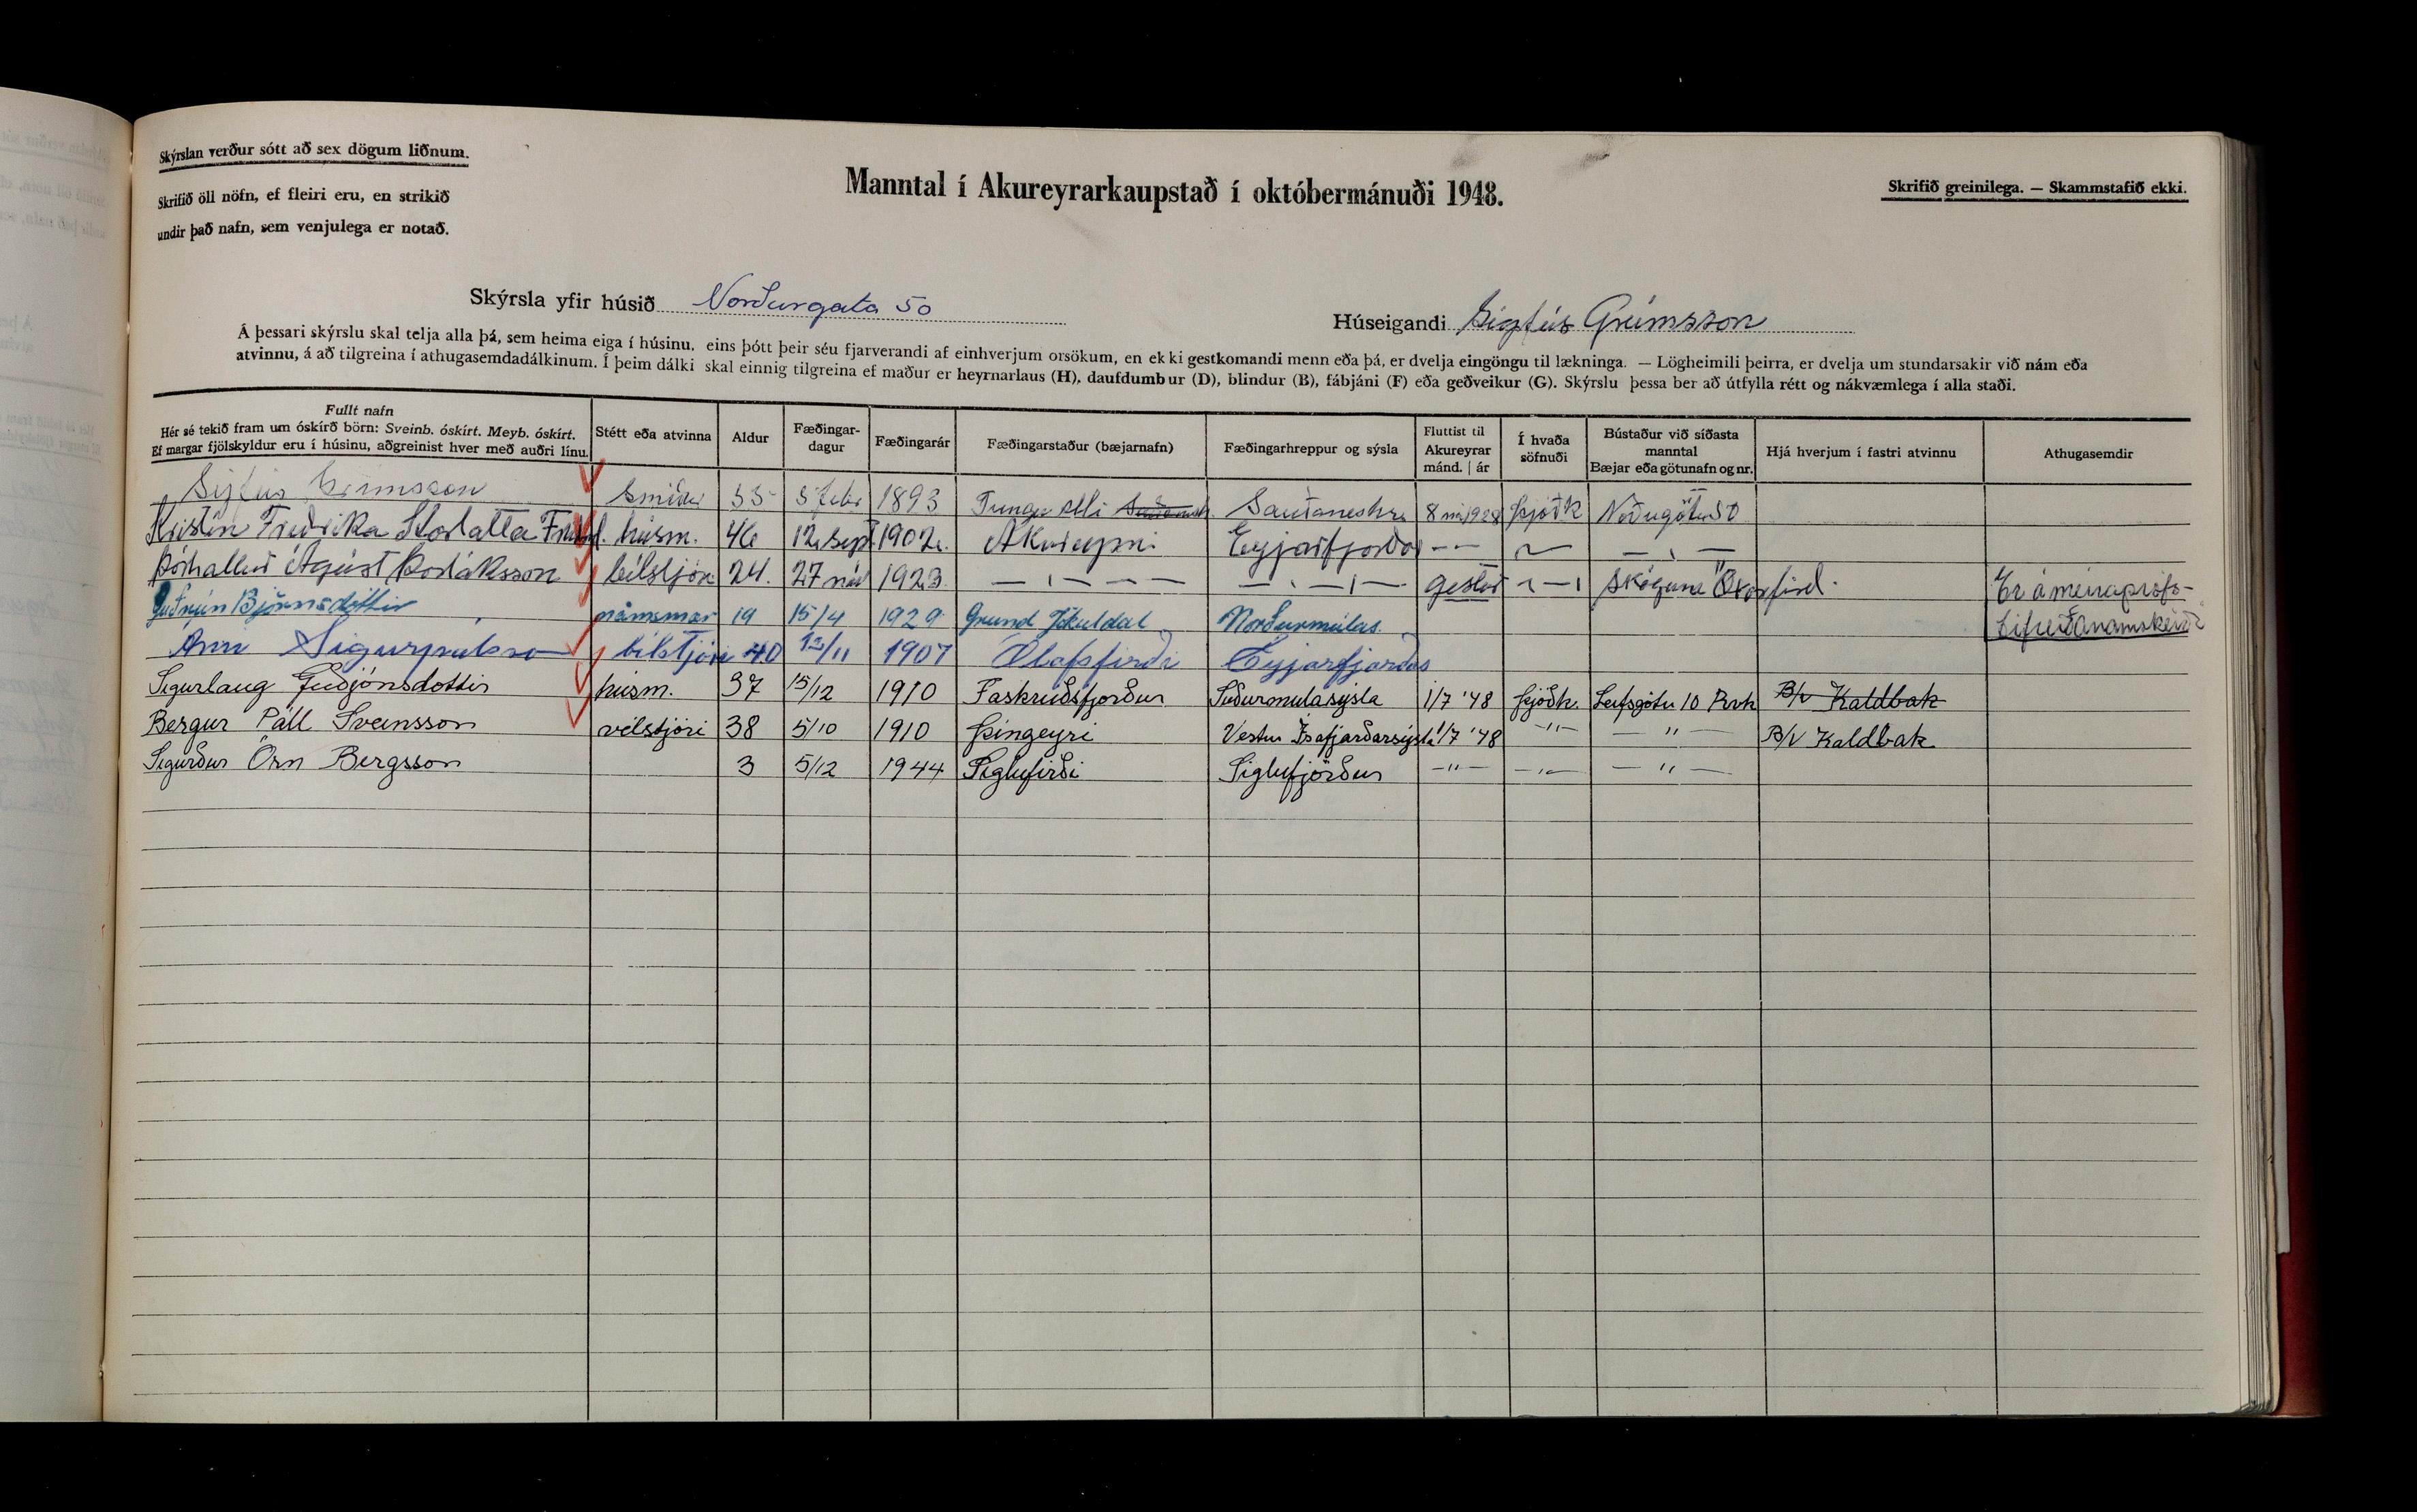 Skýrslan verður sótt að sex dögum liðnum.
Skrifið öll nöfn, ef fleiri eru, en strikið
undir það nafn, sem venjulega er notað.
Manntal í Akureyrarkaupstað í októbermánuði 1948.
Skrifið greinilega. — Skammstafið ekki.
Skýrsla yfir húsið Norðurgata 50
Húseigandi Sigfús Grímsson
Á þessari skýrslu skal telja alla þá, sem heima eiga í húsinu, eins þótt þeir séu fjarverandi af einhverjum orsökum, en ekki gestkomandi menn eða þá, er dvelja eingöngu til lækninga. — Lögheimili þeirra, er dvelja um stundarsakir við nám eða
atvinnu, á að tilgreina í athugasemdadálkinum. Í þeim dálki skal einnig tilgreina ef maður er heyrnarlaus (H), daufdumbur (D), blindur (B), fábjáni (F) eða geðveikur (G). Skýrslu þessa ber að útfylla rétt og nákvæmlega í alla staði.
Fullt nafn
Hér sé tekið fram um óskírð börn: Sveinb. óskírt. Meyb. óskírt.
Ef margar fjölskyldur eru í húsinu, aðgreinist hver með auðri línu.
Stétt eða atvinna
Aldur
Fæðingar-
dagur
Fæðingarár
Fæðingarstaður (bæjarnafn)
Fæðingarhreppur og sýsla
Fluttist til
Akureyrar
mánd. | ár
Í hvaða
söfnuði
Bústaður við síðasta
manntal
Bæjar eða götunafn og nr.
Hjá hverjum í fastri atvinnu
Athugasemdir
Sigfús Grímsson smiður 55 5 febr 1893 Tungu Sauðaneshr 8 1928 þjóðk Norðugötu 50
Kristín Friðrika húsm. 46 12. sept. 1902. Akureyri Eyjafjarðar — —
Þórhallur Ágúst Þorláksson bílstjóri 24. 27 nóv 1923. — ı — — — — ı — gestur — ı Skógum Öxarfird. Er á meiraprófs-
Guðrún Björnsdóttir námsmær 19 15/4 1929 Grund Jökuldal Norðurmúlas. bifreiðanámskeiði
Sigurpálsson bílstjóri 40 /11 1907 Ólafsfirði Eyjafjarðas
Sigurlaug Guðjónsdóttir húsm. 37 15/12 1910 Fáskrúðsfjörður Suðurmúlasýsla 1/7 '48 þjóðk. Leifsgötu 10 Rvk B/v Kaldbak
Bergur Páll Sveinsson vélstjóri 38 5/10 1910 Þingeyri Vestur Ísafjarðarsýsla 1/7 '48 —"— — " — B/v Kaldbak
Sigurður Örn Bergsson 3 5/12 1944 Siglufirði Siglufjörður —"— —"— — " —